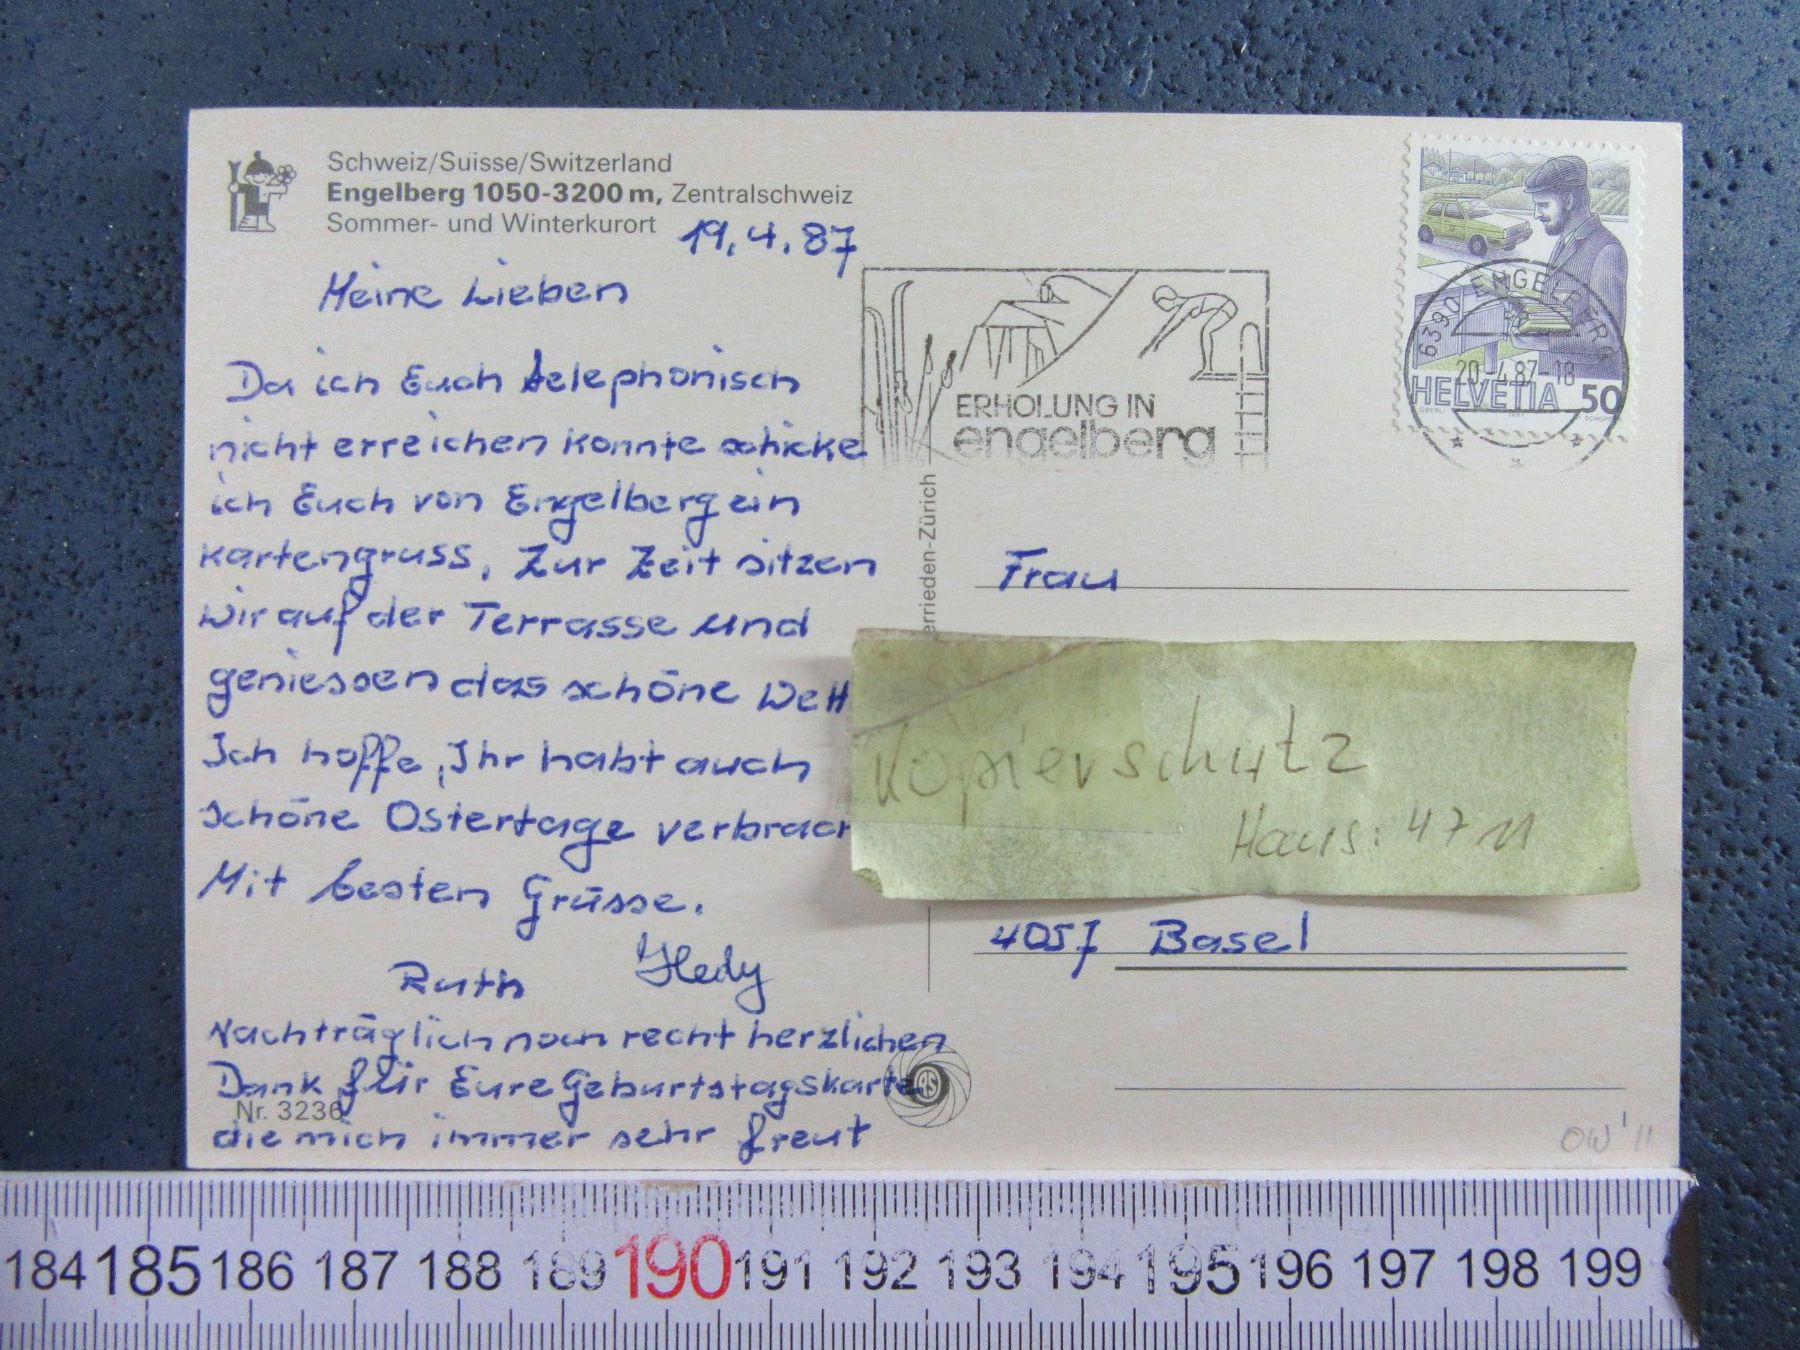 Schweiz/Suisse/Switzerland
Engelberg 1050-3200 m, Zentralschweiz
Sommer- und Winterkurort
19.4.87
Meine Lieben
Da ich Euch telephonisch
nicht erreichen konnte schicke
ich Euch von Engelberg ein
Kartengruss. Zur Zeit sitzen
wir auf der Terrasse und
geniessen das schöne Wett
Ich hoffe, Ihr habt auch
schöne Ostertage verbrach
Mit besten Grüsse.
Ruth Hedy
Nachträglich noch recht herzlichen
Dank für Eure Geburtstagskarte
die mich immer sehr freut
Nr. 3236
ERHOLUNG IN
engelberg
6390 ENGELBERG
20.-4.87-18
HELVETIA 50
errieden-Zürich
Frau
Kopierschutz
Haus: 4711
4057 Basel
OW '11
184 185 186 187 188 189 190 191 192 193 194 195 196 197 198 199